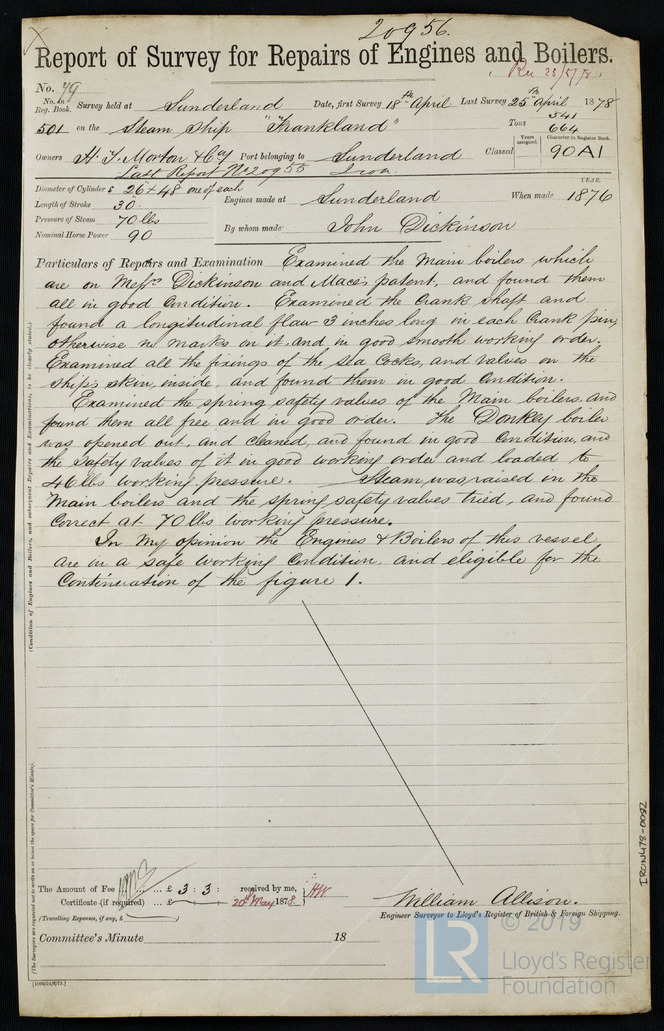 20956.
Report of Survey for Repairs of Engines and Boilers.
Rec 23/5/78
No. 79
No. in Reg. Book. Survey held at Sunderland Date, first Survey 18th April Last Survey 25th April 1878
501 on the Steam Ship "Frankland" Tons 541 664
Years assigned. Character in Register Book.
Owners H. T. Morton & Coy Port belonging to Sunderland Classed 90A1
Last Report No 20955 Iron
Diameter of Cylinders 26" + 48 one of each
Length of Stroke 30"
Pressure of Steam 70 lbs
Nominal Horse Power 90
Engines made at Sunderland When made YEAR. 1876
By whom made John Dickinson
Particulars of Repairs and Examination Examined the main boilers which
are on Messrs Dickinson and Mace's patent, and found them
all in good Condition. Examined the Crank Shaft and
found a longitudinal flaw 3 inches long in each Crank pin,
otherwise no marks on it and in good smooth working order.
Examined all the fixings of the Sea Cocks, and valves on the
Ship's skin, inside, and found them in good Condition.
Examined the spring safety valves of the Main boilers and
found them all free and in good order. The Donkey boiler
was opened out, and cleaned, and found in good Condition, and
the safety valves of it in good working order and loaded to
46 lbs working pressure. Steam was raised in the
Main boilers and the spring safety valves tried, and found
Correct at 70 lbs working pressure.
In my opinion the Engines & Boilers of this vessel
are in a safe working Condition, and eligible for the
Continuation of the figure 1.
(Condition of Engines and Boilers, and subsequent Repairs and Examinations, to be clearly stated.)
(The Surveyors are requested not to write on or below the space for Committee's Minute).
The Amount of Fee ... £ 3 : 3 : received by me,
Certificate (if required) ... £ 20th May 1878. HW
(Travelling Expenses, if any, £ )
William Allison.
Engineer Surveyor to Lloyd's Register of British & Foreign Shipping.
Committee's Minute 18
IRON478-0092
© 2019
LR
Lloyd's Register
Foundation